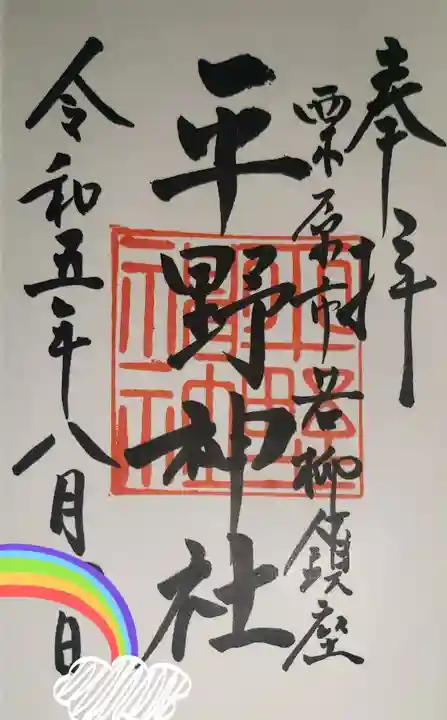 奉拝
栗原市若柳鎮座
平野神社
令和五年八月 日
平野神社